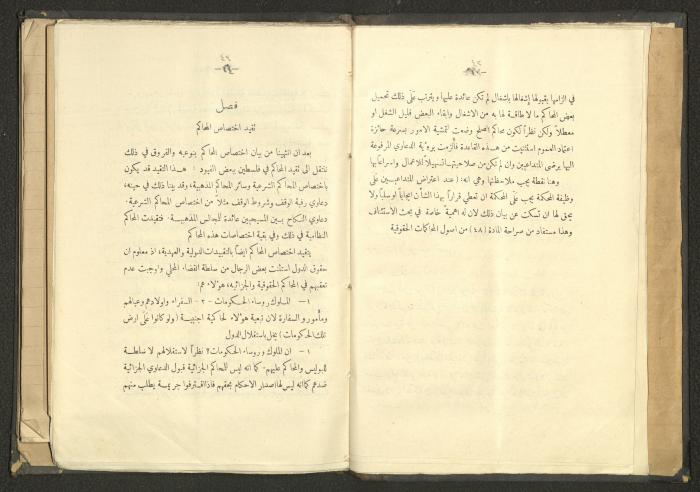 في الزامها بقبولها إشغالها باشغال لم تكن عائدة عليها ويترتب على ذلك تحميل
بعض المحاكم ما لا طاقة لها به من الاشغال وابقاء البعض قليل الشغل او
معطلاً ولكن نظراً لكون محاكم الصلح وضعت لتمشية الامور بسرعة حائزة
اعتماد العموم استثنيت من هذه القاعدة فألزمت برؤية الدعاوي المرفوعة
اليها برضى المتداعيين وان لم تكن من صلاحيتها تسهيلاً للاعمال واسراعاً بها
وهنا نقطة يجب ملاحظتها وهي انه: (عند اعتراض المتداعيين على
وظيفة المحكمة يجب على المحكمة ان تعطي قراراً بهذا الشأن ايجاباً او سلباً ولا
يحق لها ان تسكت عن بيان ذلك لان له اهمية خاصة في بحث الاستئناف
وهذا مستفاد من صراحة المادة (٤٨) من اصول المحاكمات الحقوقية
٤٢
فصل
تقيد اختصاص المحاكم
بعد ان انتهينا من بيان اختصاص المحاكم بنوعيه والفروق في ذلك
ننتقل الى تقيد المحاكم في فلسطين ببعض القيود: هذا التقيد قد يكون
باختصاص المحاكم الشرعية وسائر المحاكم المذهبية، وقد بينا ذلك في حينه،
دعاوي رقبة الوقف وشروط الوقف مثلاً من اختصاص المحاكم الشرعية.
دعاوي النكاح بين المسيحيين عائدة للمجالس المذهبية. فتقيدت المحاكم
النظامية في ذلك وفي بقية اختصاصات هذه المحاكم
يتقيد اختصاص المحاكم ايضاً بالتقييدات الدولية والعهدية، اذ معلوم ان
حقوق الدول استثنت بعض الرجال من سلطة القضاء المحلي واوجبت عدم
تعقبهم في المحاكم الحقوقية والجزائية، هؤلاء هم:
١— الملوك ورؤساء الحكومات - ٢ - السفراء واولادهم وعيالهم
ومأمورو السفارة لان تبعية هؤلاء لحاكية اجنبية (ولو كانوا على ارض
تلك الحكومات) يخل باستقلال الدول
١— ان الملوك ورؤساء الحكومات، نظراً لاستقلالهم لا سلطة
للبوليس والمحاكم عليهم. كما انه ليس للمحاكم الجزائية قبول الدعاوي الجزائية
ضدهم كما انه ليس لها اصدار الاحكام بحقهم فاذا اقترفوا جريمة يطلب منهم